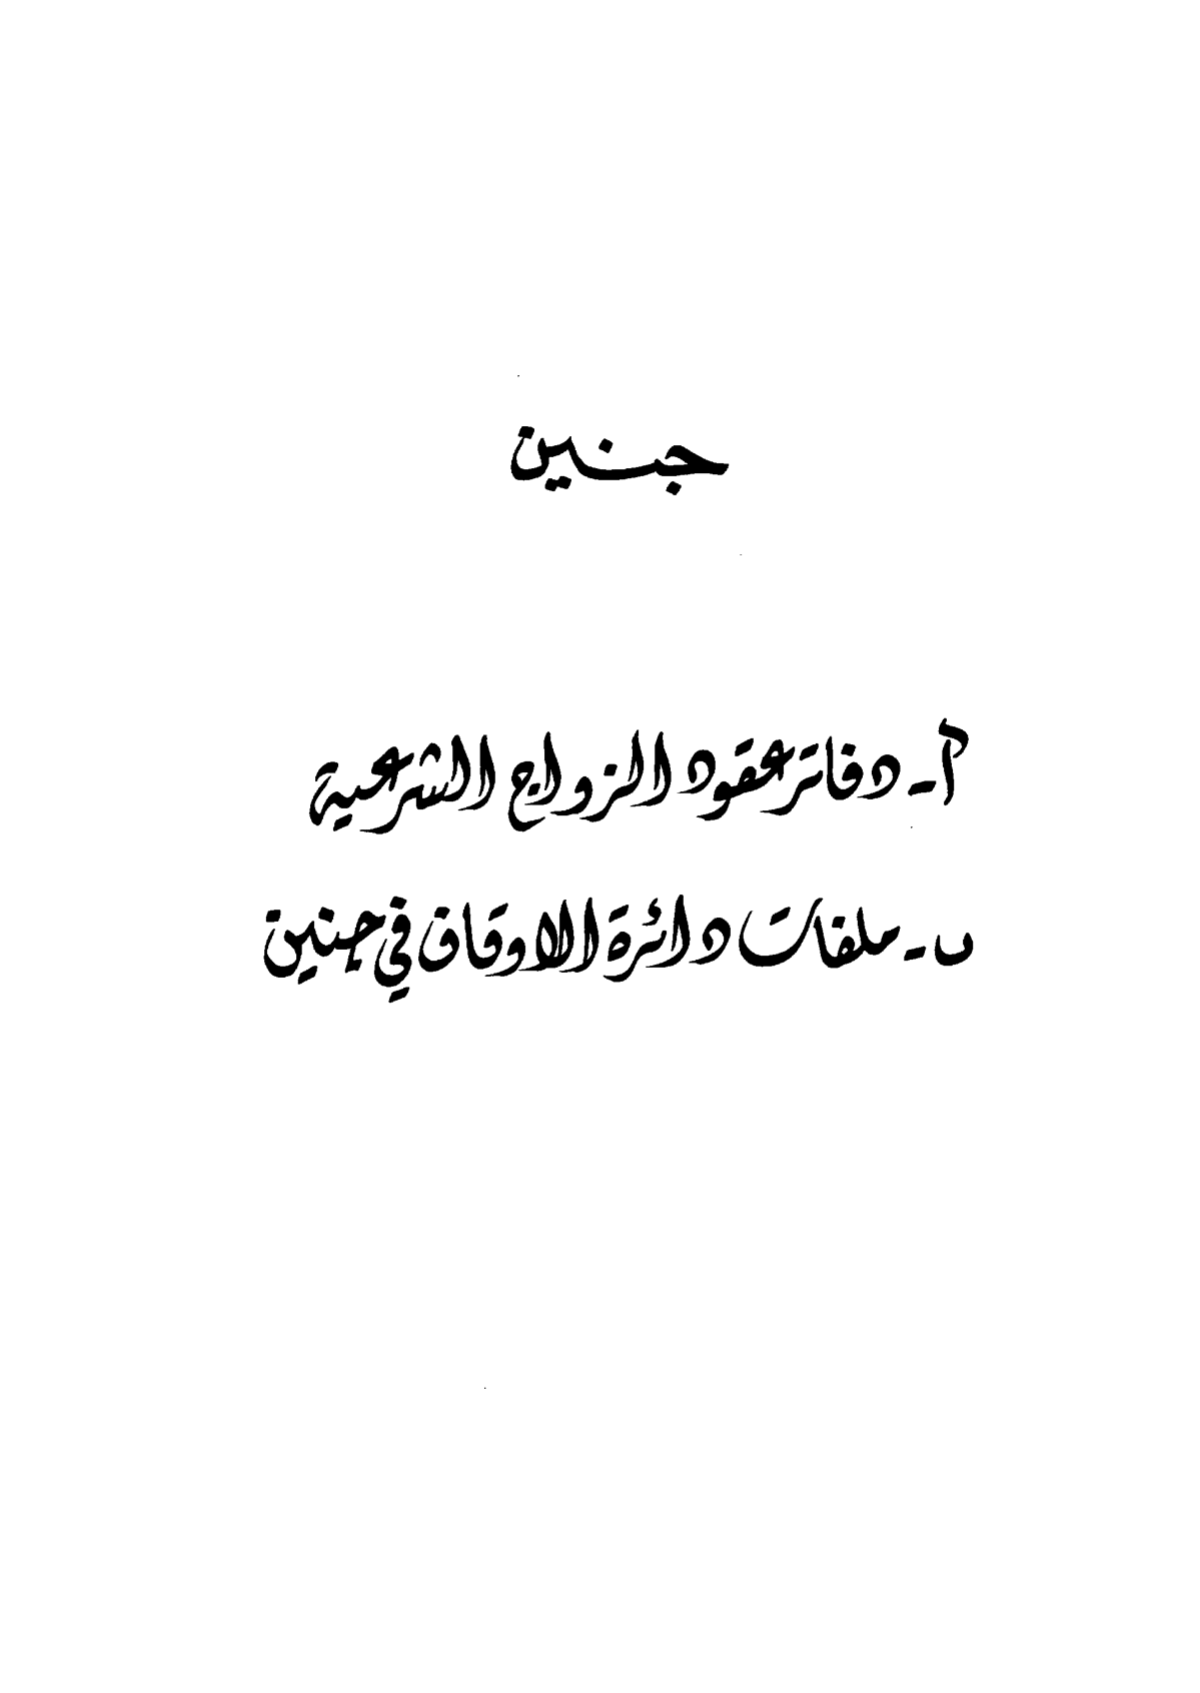 جنين
أ- دفاتر عقود الزواج الشرعية
ب- ملفات دائرة الاوقاف في جنين